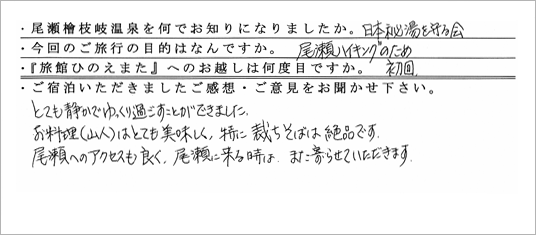 ・尾瀬檜枝岐温泉を何でお知りになりましたか。 日本秘湯を守る会
・今回のご旅行の目的はなんですか。 尾瀬ハイキングのため
・『旅館ひのえまた』へのお越しは何度目ですか。 初回
・ご宿泊いただきましたご感想・ご意見をお聞かせ下さい。
とても静かでゆっくり過ごすことができました。
お料理(山人)はとても美味しく、特に裁ちそばは絶品です。
尾瀬へのアクセスも良く、尾瀬に来る時は、また寄らせていただきます。